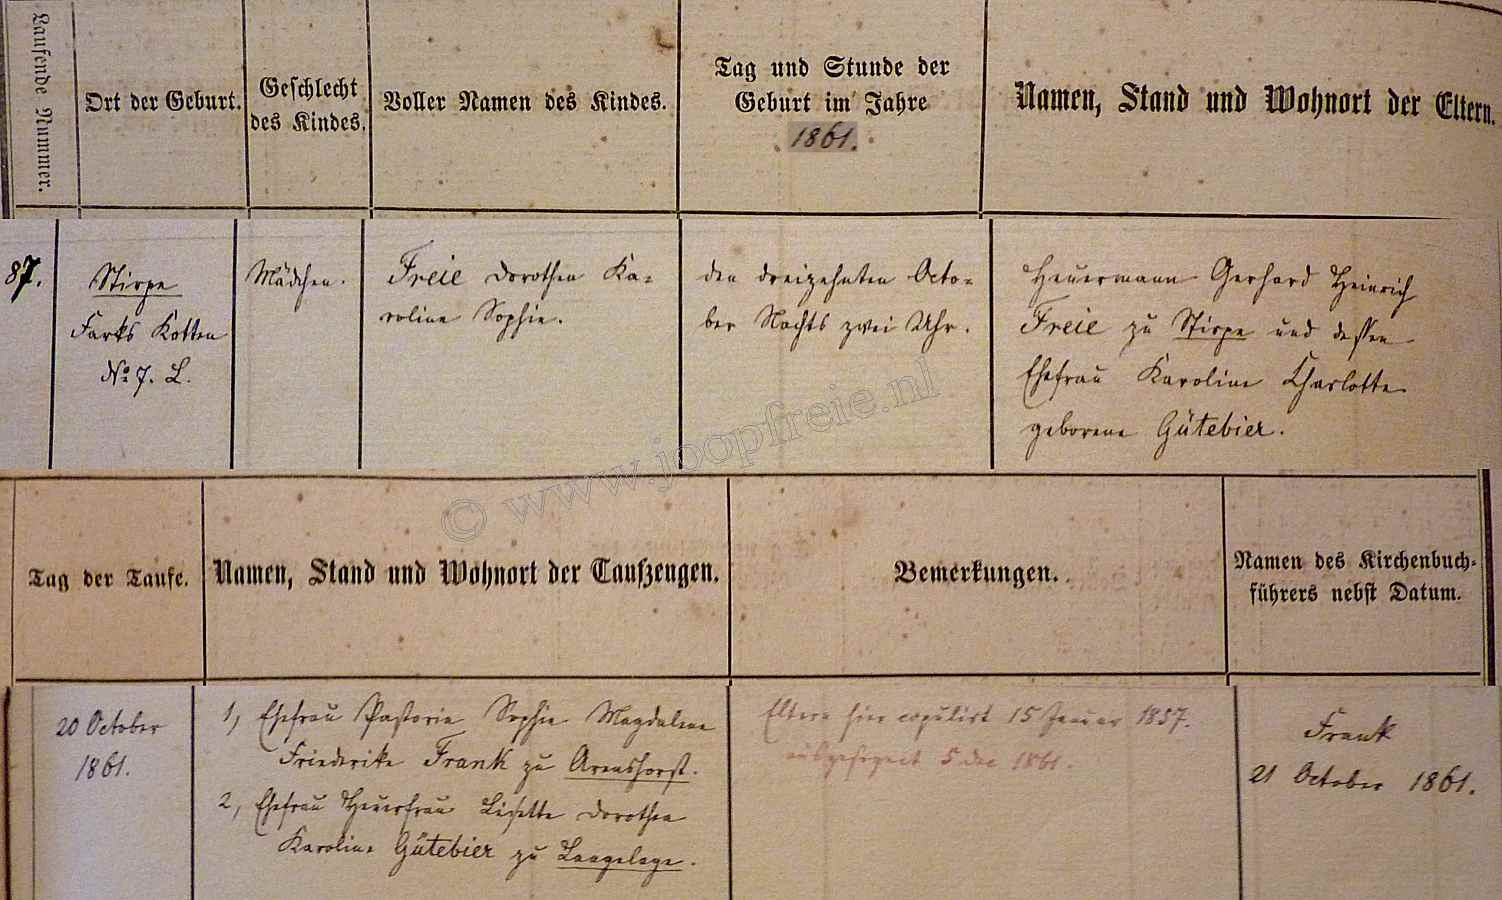 Laufende Nummer.
Ort der Geburt.
Geschlecht
des Kindes.
Voller Namen des Kindes.
Tag und Stunde der
Geburt im Jahre
1861.
Namen, Stand und Wohnort der Eltern.
87.
Stirpe
Farks Kotten
No 7. L.
Mädchen.
Freie Dorothea Ka-
roline Sophie.
den dreizehnten Octo-
ber Nachts zwei Uhr.
Heuermann Gerhard Heinrich
Freie zu Stirpe und dessen
Ehefrau Karoline Charlotte
geborene Gütebier.
© www.joopfreie.nl
Tag der Taufe.
Namen, Stand und Wohnort der Taufzeugen.
Bemerkungen.
Namen des Kirchenbuch-
führers nebst Datum.
20 October
1861.
1, Ehefrau Pastorin Sophie Magdalene
Friederike Frank zu Arenshorst.
2, Ehefrau Heuerfrau Lisette Dorothea
Karoline Gütebier zu Langelage.
Eltern hier copulirt 15 Januar 1857.
5 Dec 1861.
Frank
21 October 1861.